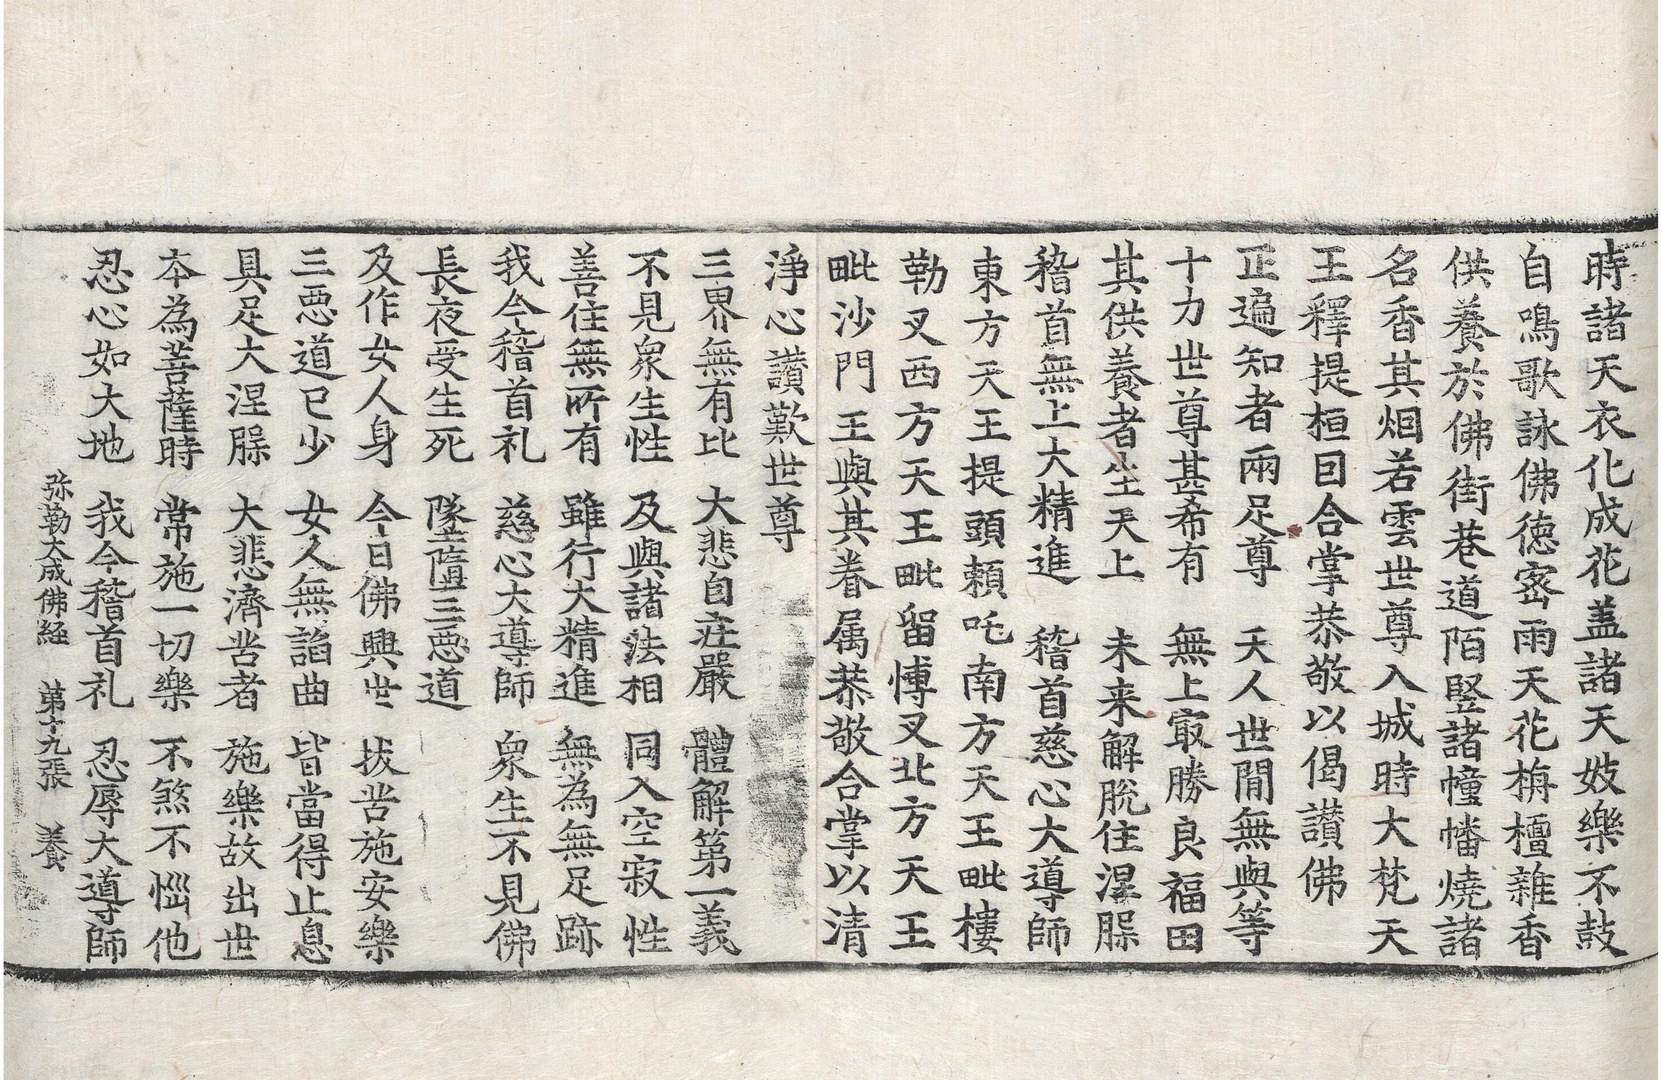 時諸天衣化成花盖諸天妓樂不鼓
自鳴歌詠佛徳宻雨天花栴檀雜香
供養於佛街巷道陌竪諸幢幡燒諸
名香其烟若雲世尊入城時大梵天
王釋提桓因合掌恭敬以偈讃佛
正遍知者兩足尊 天人世閒無與等
十力世尊甚希有 無上㝡勝良福田
其供養者生天上 未来解脫住涅膟
稽首無上大精進 稽首慈心大導師
東方天王提頭頼吒南方天王毗樓
勒叉西方天王毗留愽叉北方天王
毗沙門王與其眷属恭敬合掌以清
淨心讃歎世尊
三界無有比 大悲自庄嚴 體解第一義
不見衆生性 及與諸法相 同入空寂性
善住無所有 雖行大精進 無為無足跡
我今稽首礼 慈心大導師 衆生不見佛
長夜受生死 墜墮三惡道
及作女人身 今日佛興世 拔苦施安樂
三惡道已少 女人無諂曲 皆當得止息
具足大涅膟 大悲濟苦者 施樂故出世
本為菩薩時 常施一切樂 不煞不惱他
忍心如大地 我今稽首礼 忍辱大導師
弥勒大成佛経 第十九張 養